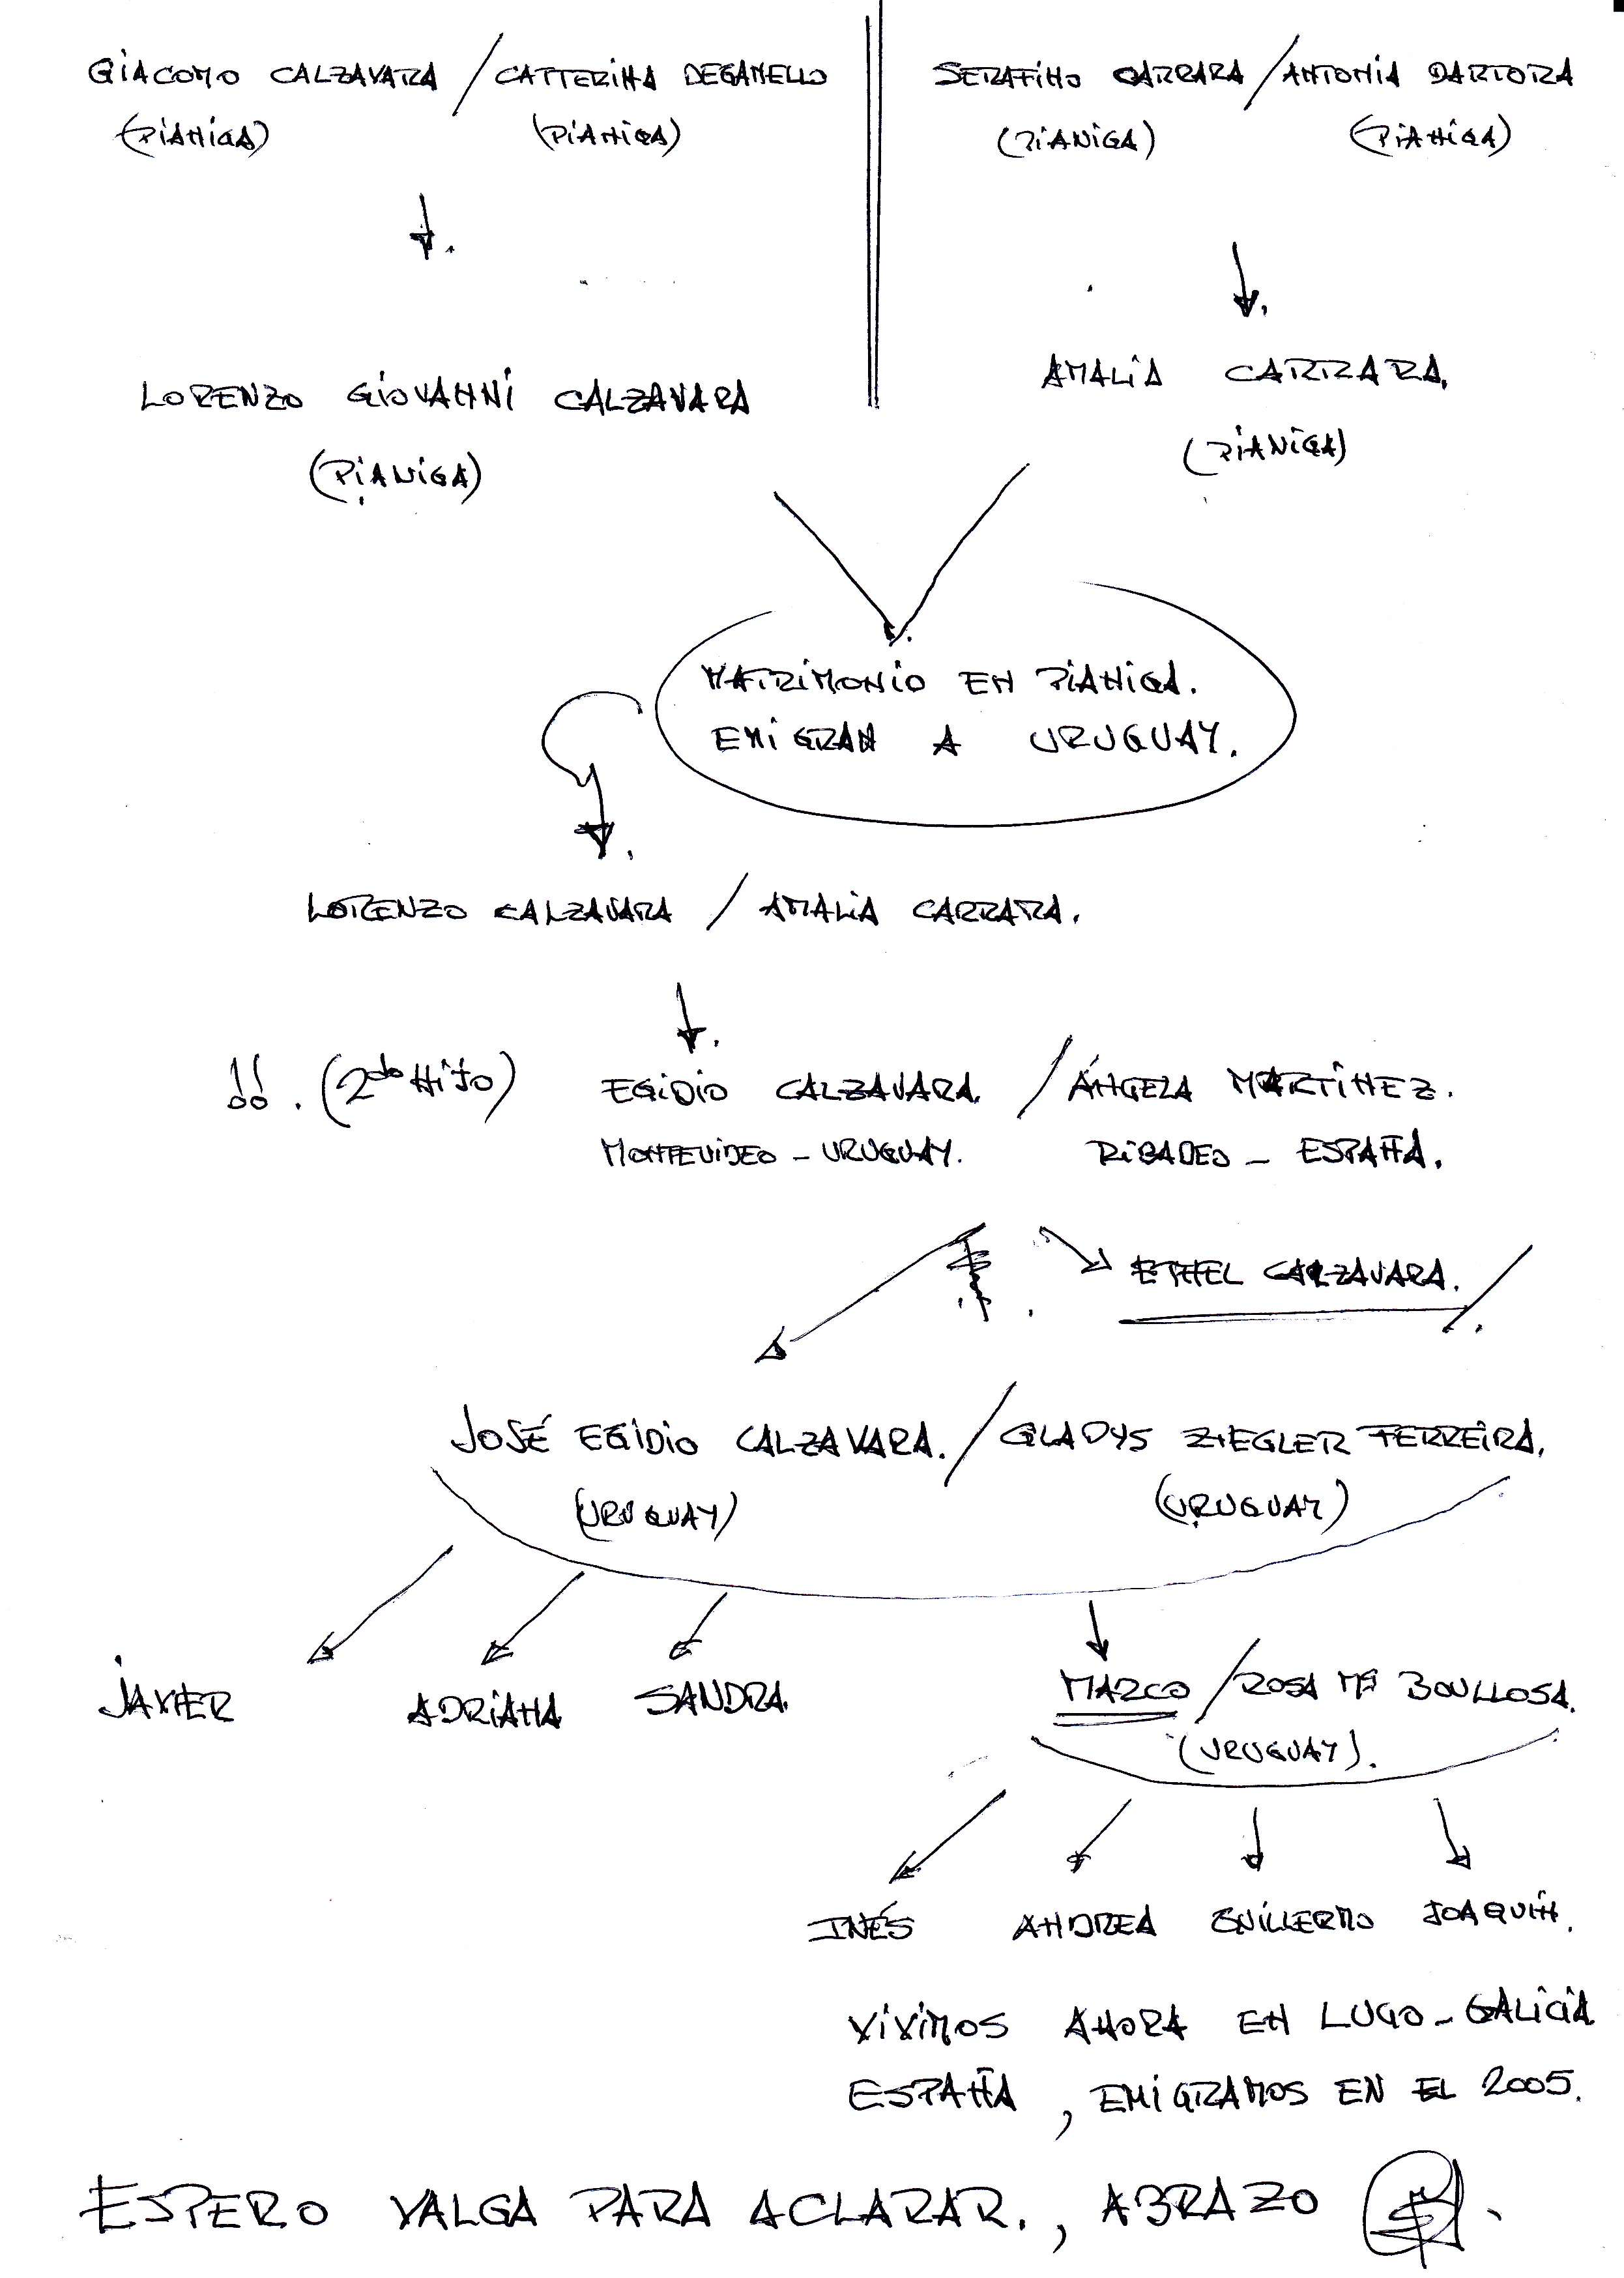 GIACOMO CALZAVARA / CATTERINA DEGANELLO
(PIANIGA) (PIANIGA)
SERAFINO CARRARA / ANTONIA DARTORA
(PIANIGA) (PIANIGA)
LORENZO GIOVANNI CALZAVARA
(PIANIGA)
AMALIA CARRARA.
(PIANIGA)
MATRIMONIO EN PIANIGA.
EMIGRAN A URUGUAY.
LORENZO CALZAVARA / AMALIA CARRARA.
(2do HIJO) EGIDIO CALZAVARA. / ÁNGELA MARTINEZ.
MONTEVIDEO - URUGUAY. RIBADEO - ESPAÑA.
ETHEL CALZAVARA.
JOSÉ EGIDIO CALZAVARA. / GLADYS ZIEGLER FERREIRA.
(URUGUAY) (URUGUAY)
JAVIER ADRIANA SANDRA. MARCO / ROSA Mª BOULLOSA.
(URUGUAY).
INÉS ANDREA GUILLERMO JOAQUÍN.
VIVIMOS AHORA EN LUGO - GALICIA
ESPAÑA, EMIGRAMOS EN EL 2005.
ESPERO VALGA PARA ACLARAR., ABRAZO